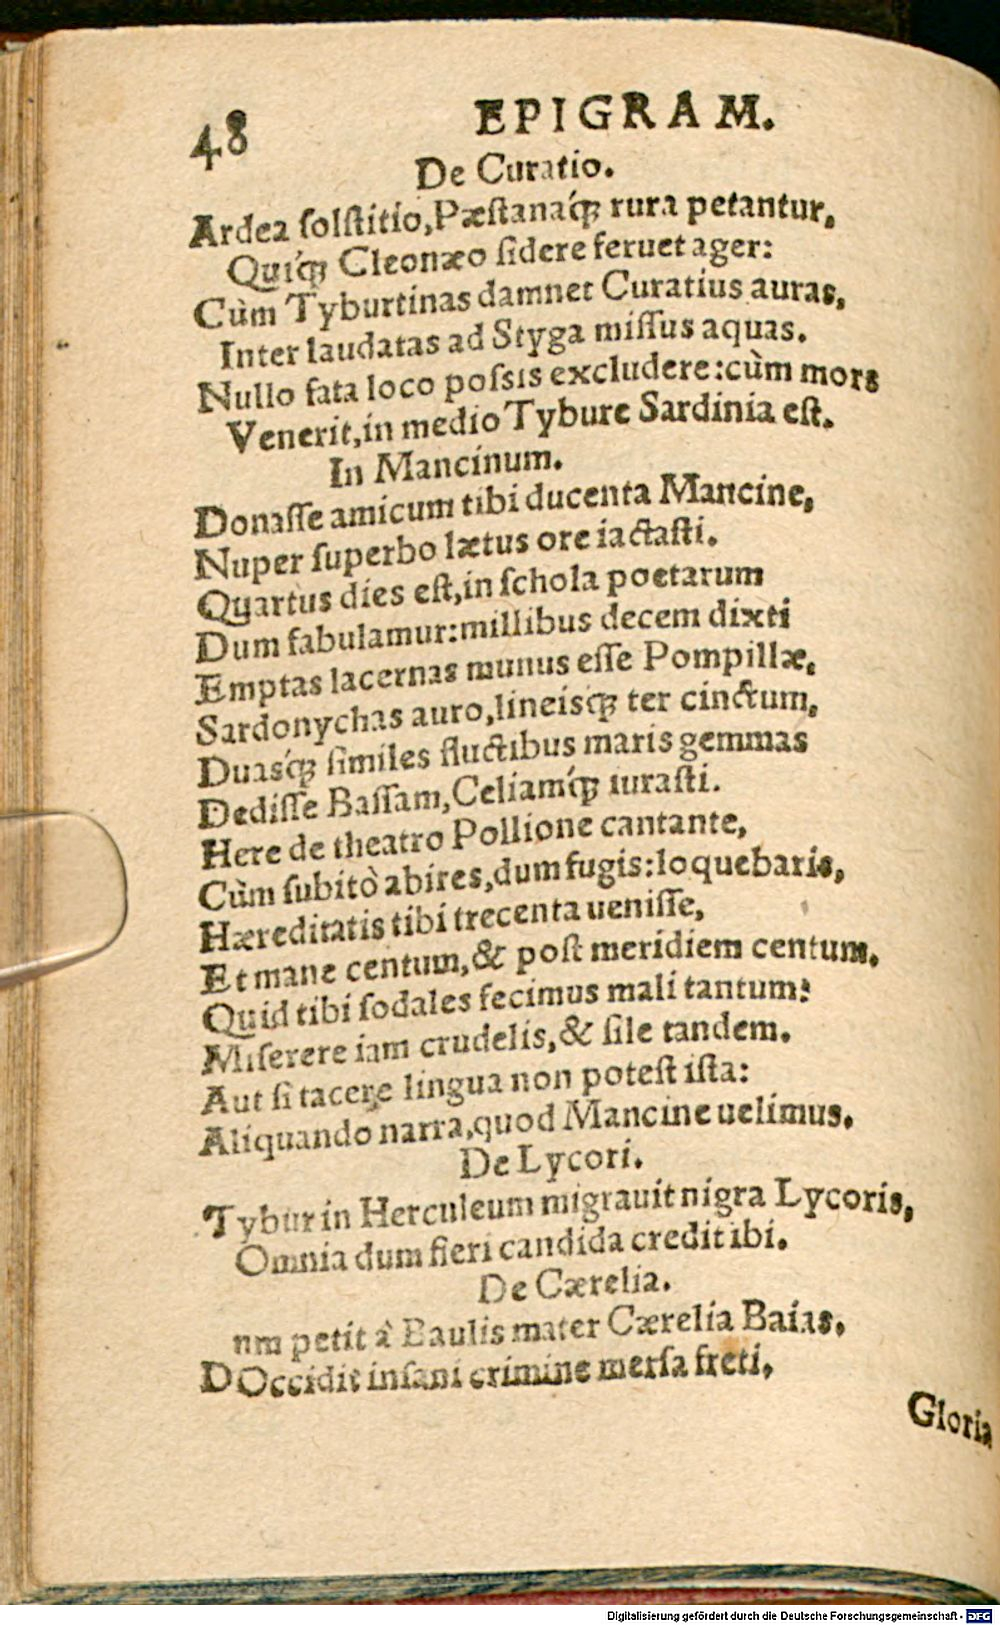 48 EPIGRAM.
De Curatio.
Ardea ſolſtitio, Pæſtanaq́ꝫ rura petantur,
Quiq́ꝫ Cleonæo ſidere feruet ager:
Cùm Tyburtinas damnet Curatius auras,
Inter laudatas ad Styga miſſus aquas.
Nullo fata loco poſsis excludere: cùm mors
Venerit, in medio Tybure Sardinia eſt.
In Mancinum.
Donaſſe amicum tibi ducenta Mancine,
Nuper ſuperbo lætus ore iactaſti.
Quartus dies eſt, in ſchola poetarum
Dum fabulamur: millibus decem dixti
Emptas lacernas munus eſſe Pompillæ,
Sardonychas auro, lineisq́ꝫ ter cinctum,
Duasq́ꝫ ſimiles fluctibus maris gemmas
Dediſſe Baſſam, Celiamq́ꝫ iuraſti.
Here de theatro Pollione cantante,
Cùm ſubitò abires, dum fugis: loquebaris,
Hæreditatis tibi trecenta ueniſſe,
Et mane centum, & poſt meridiem centum.
Quid tibi ſodales fecimus mali tantum?
Miſerere iam crudelis, & ſile tandem.
Aut ſi tacere lingua non poteſt iſta:
Aliquando narra, quod Mancine uelimus.
De Lycori.
Tybur in Herculeum migrauit nigra Lycoris,
Omnia dum fieri candida credit ibi.
De Cærelia.
um petit à Baulis mater Cærelia Baias,
D Occidit inſani crimine merſa freti,
Gloria
Digitalisierung gefördert durch die Deutsche Forschungsgemeinschaft - DFG